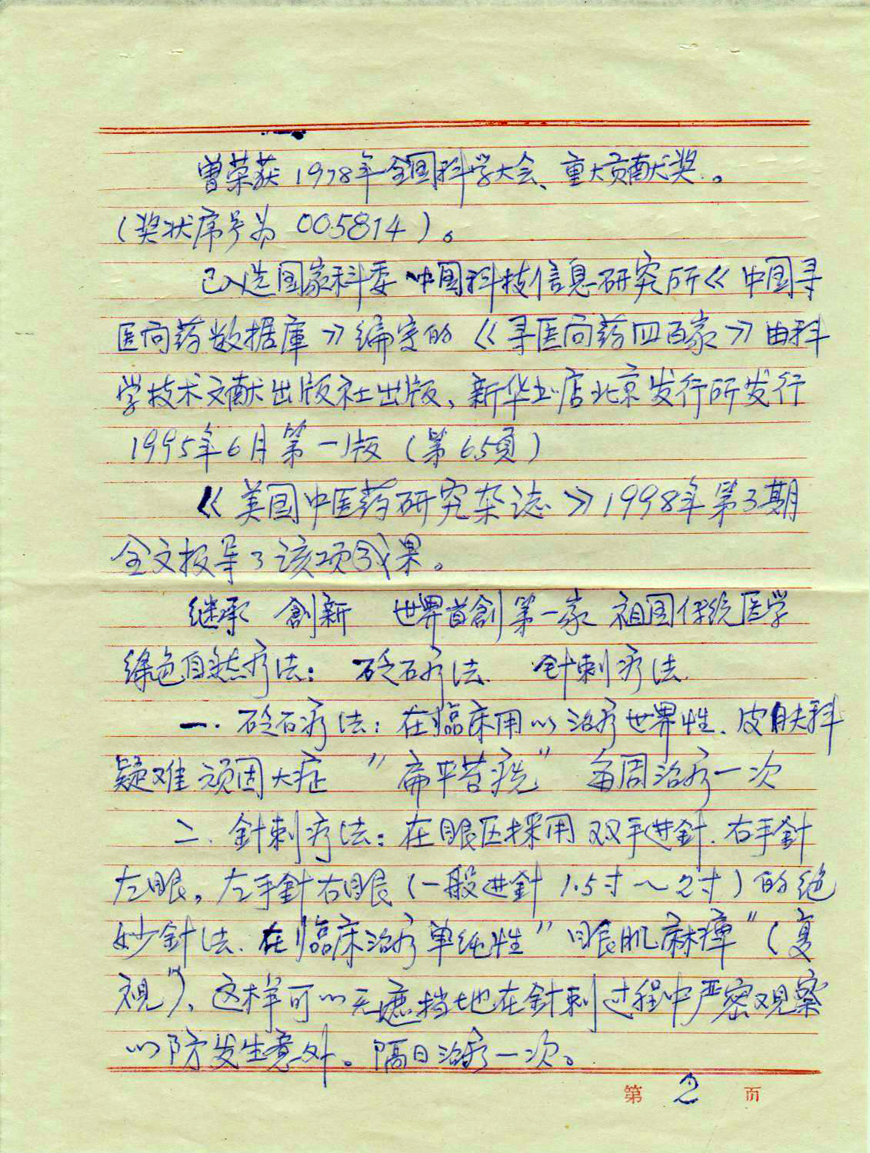 曾荣获1978年全国科学大会、重大贡献奖。
（奖状序号为 005814）。
已入选国家科委 中国科技信息研究所《中国寻
医问药数据庫》编定的《寻医问药四百家》由科
学技术文献出版社出版、新华书店北京发行所发行
1995年6月第一版（第65頁）
《美国中医药研究杂誌》1998年第3期
全文报导了该项成果。
继承 創新 世界首創第一家 祖国传统医学
绿色自然疗法： 砭石疗法． 針刺疗法．
一．砭石疗法：在临床用以治疗世界性．皮肤科
疑难顽固大症 "扁平苔癣" 每周治疗一次
二．針刺疗法：在眼区採用双手进針．右手針
左眼，左手針右眼（一般进針 1.5寸～2寸）的绝
妙針法．在临床治疗单纯性"眼肌麻痹"（复
視"）、这样可以无遮挡地在針刺过程中严密观察
以防发生意外。隔日治疗一次。
第 2 页